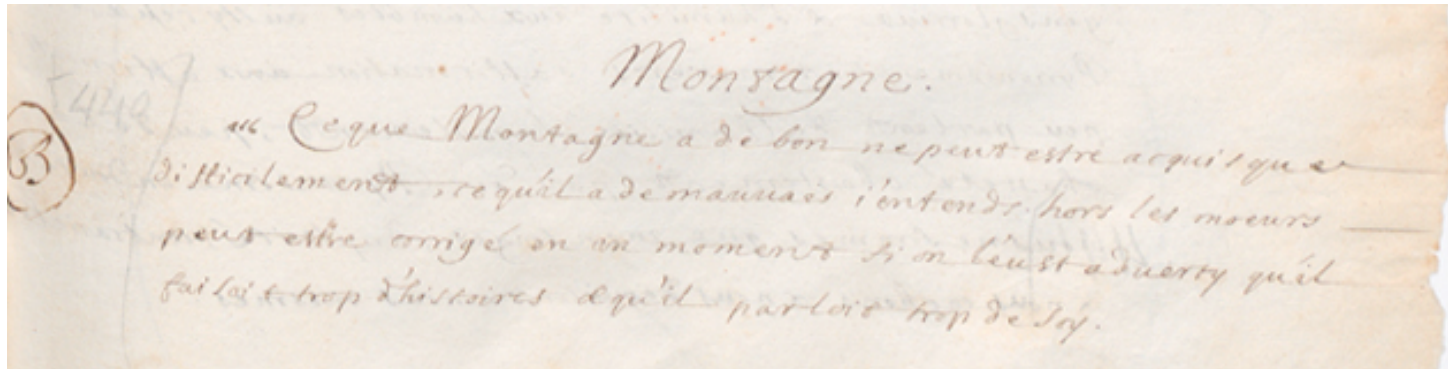 Montagne.
449
B
Ce que Montagne a de bon ne peut estre acquis que
difficilement. ce qu'il a de mauuais i'entends hors les moeurs
peut estre corrigé en un moment si on l'eust aduerty qu'il
faisoit trop d'histoires & qu'il parloit trop de soy.